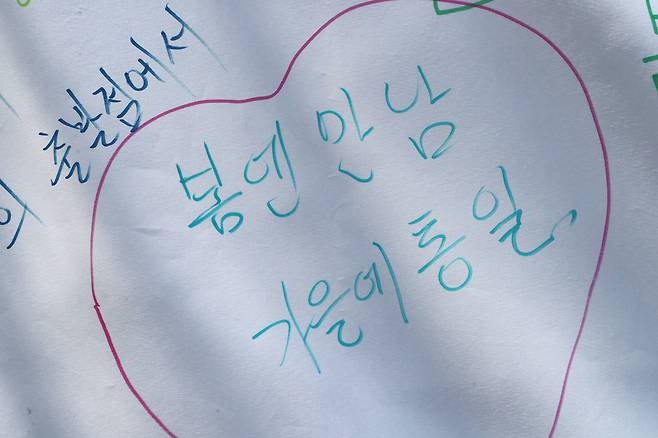 의 출발점에서
봄엔 만남
가을에 통일